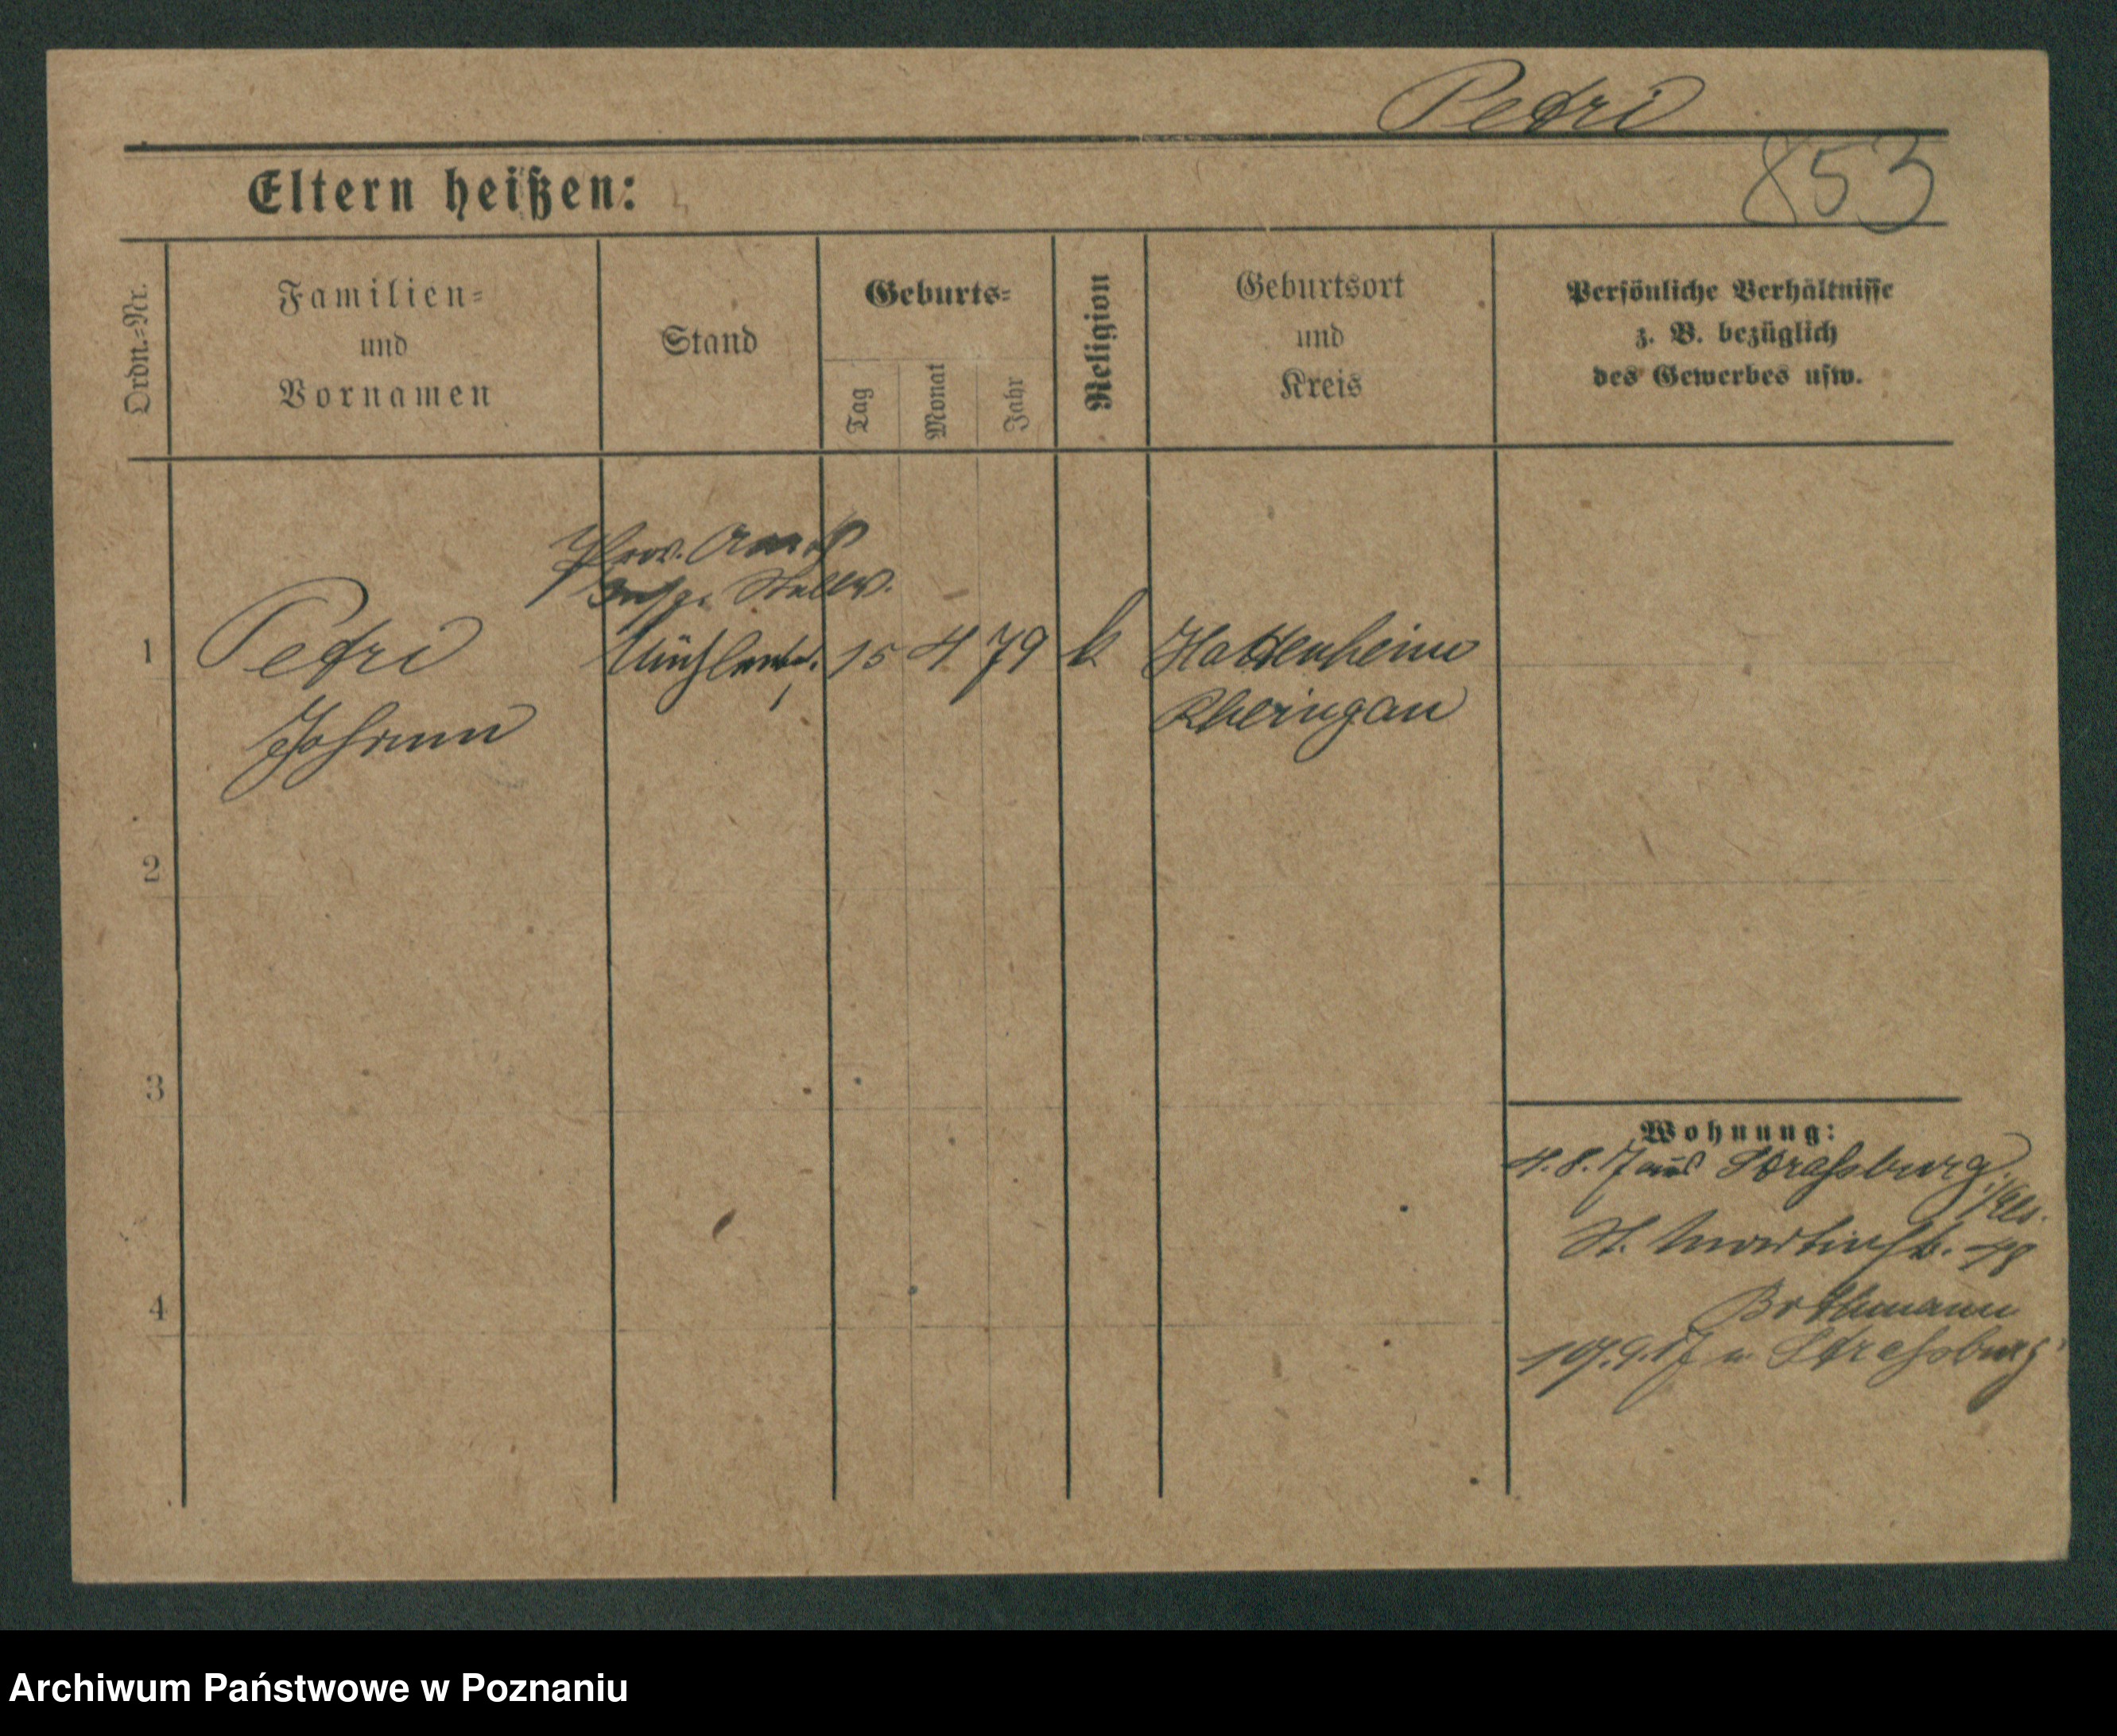 Petri
853
Eltern heißen:
Ordn.=Nr.
Familien=
und
Vornamen
Stand
Geburts=
Tag
Monat
Jahr
Religion
Geburtsort
und
Kreis
Persönliche Verhältnisse
z. B. bezüglich
des Gewerbes usw.
Prov. Amts
Stellv.
1 Petri 15 4 79 k Hattenheim
Johann Rheingau
2
3
4
Wohnung:
4.8.17 aus Strassburg
i/Els.
St. Martinstr. 48
Bothmann
9.17 n. Strassburg
Archiwum Państwowe w Poznaniu